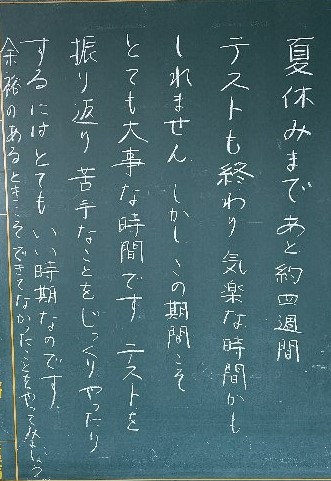 夏休みまであと約四週間.
テストも終わり 気楽な時間かも
しれません. しかし この期間こそ
とても大事な時間です. テストを
振り返り 苦手なことをじっくりやったり
するにはとても いい時期なのです.
余裕のあるときこそできてなかったことをやってみましょう